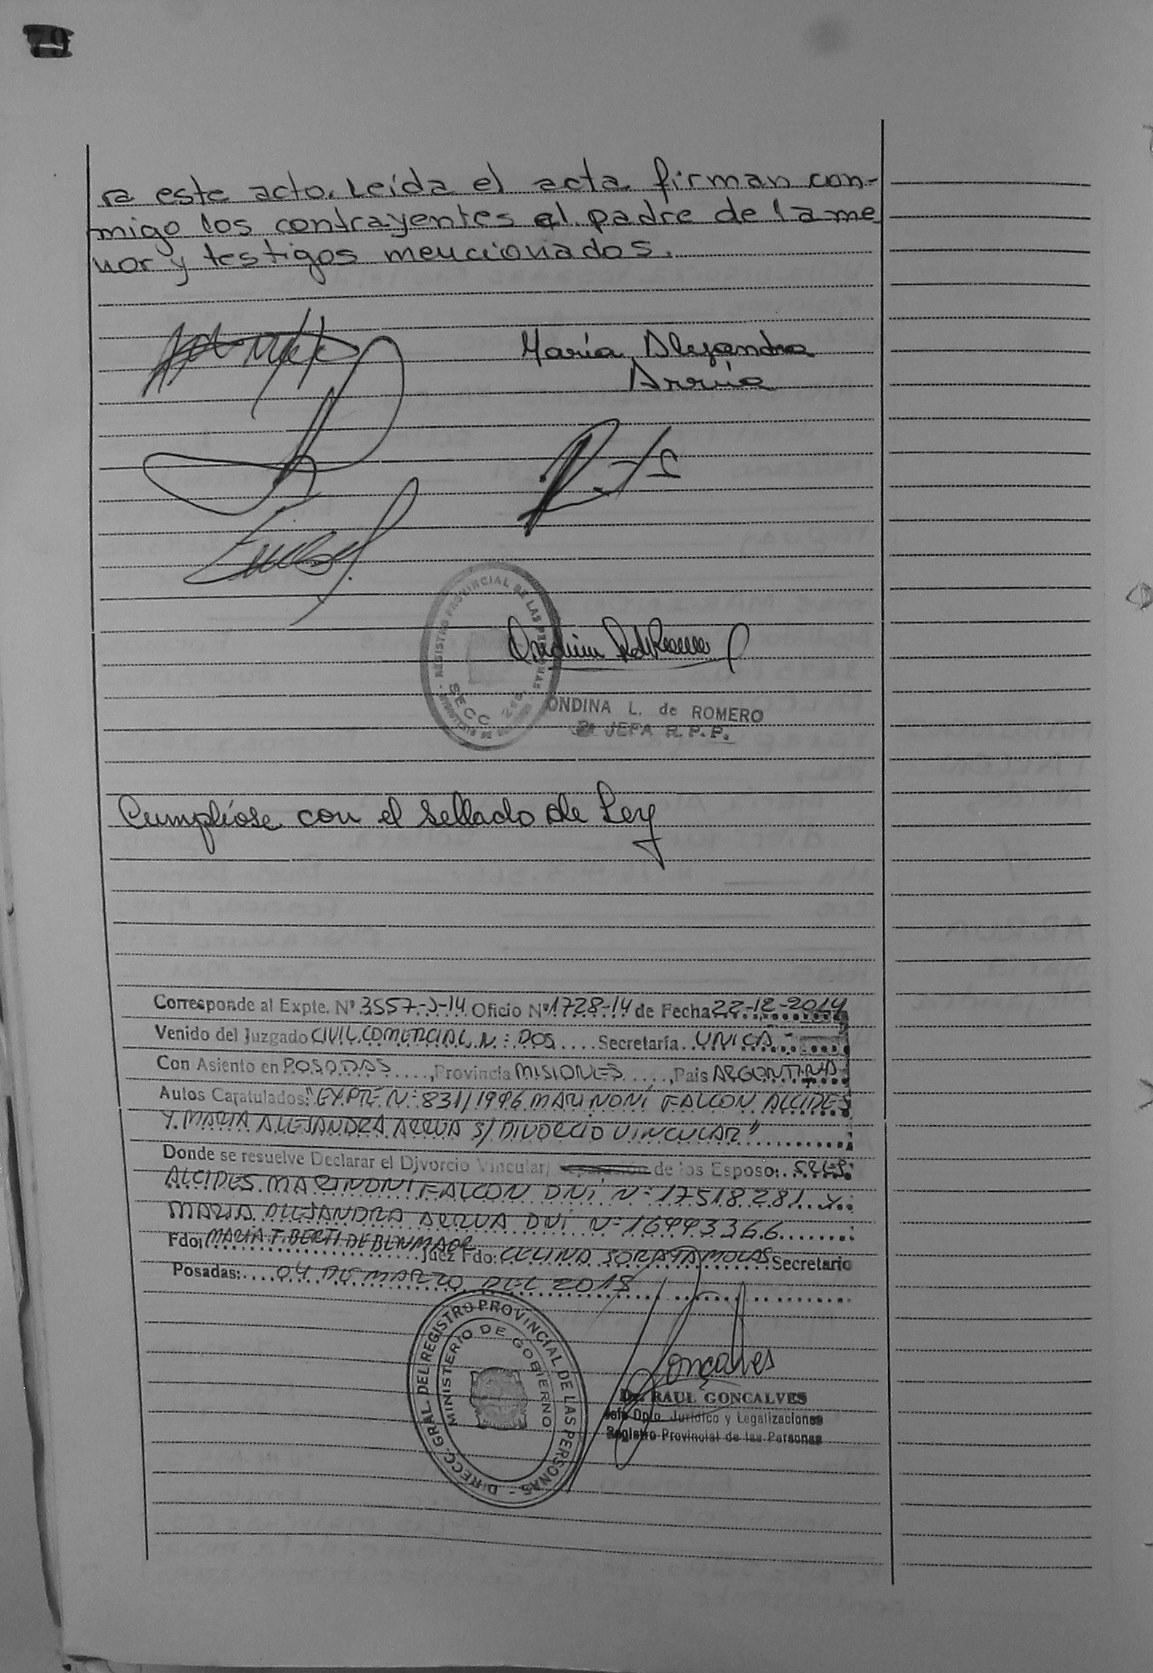 79
ra este acto. Leída el acta firman con-
migo los contrayentes el padre de la me
nor y testigos mencionados.
María Alejandra
Arrúa
REGISTRO PROVINCIAL DE LAS PERSONAS
SECC
ONDINA L. de ROMERO
JEFA R.P.P.
Cumplióse con el sellado de Ley
Corresponde al Expte. Nº 3557-J-14 Oficio Nº 1728-14 de Fecha 22-12-2014
Venido del Juzgado CIVIL COMERCIAL N: DOS .... Secretaría .. UNICA
Con Asiento en POSADAS ...., Provincia MISIONES ...., Pais ARGENTINA
Autos Caratulados: "EXPTE N: 831/1996 MARINONI FALCON ALCIDES
Y MARIA ALEJANDRA ARRUA S/ DIVORCIO VINCULAR"
Donde se resuelve Declarar el Divorcio Vincular/ de los Esposo:
ALCIDES MARINONI FALCON DNI N: 17518281 Y
MARIA ALEJANDRA ARRUA DNI N: 16993366
Fdo: MARIA T. BERTI DE BENMAOR Juez Fdo: CELINA SORAYA MOLAS Secretario
Posadas: .... 04 DE MARZO DEL 2018
DIRECC. GRAL. DEL REGISTRO PROVINCIAL DE LAS PERSONAS
MINISTERIO DE GOBIERNO
Gonçalves
Dr. RAUL GONCALVES
Jefe Dpto. Jurídico y Legalizaciones
Registro Provincial de las Personas